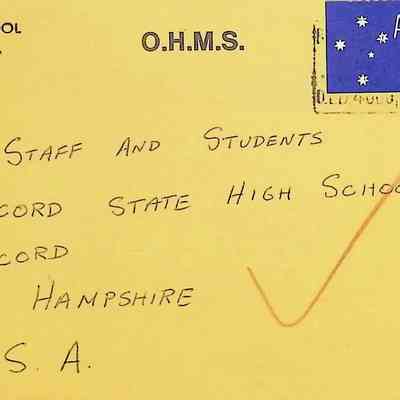 OOL
O.H.M.S.
A
QLD 4000,
STAFF AND STUDENTS
CORD STATE HIGH SCHOO
CORD
HAMPSHIRE
S. A.